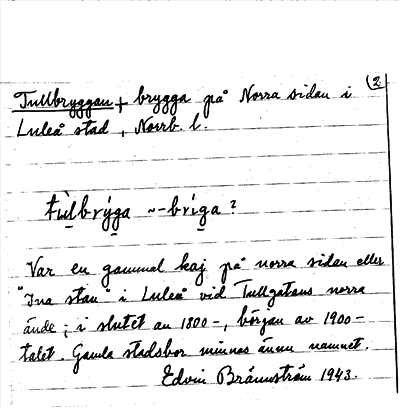 Tullbryggan + brygga på Norra sidan i (2
Luleå stad, Norrb. l.
tùlbrýga ~-bríga?
Var en gammal kaj på norra sidan eller
"Ina stan" i Luleå vid Tullgatans norra
ände; i slutet au 1800-, början av 1900-
talet. Gamla stadsbor minnas ännu namnet.
Edvin Brännström 1943.